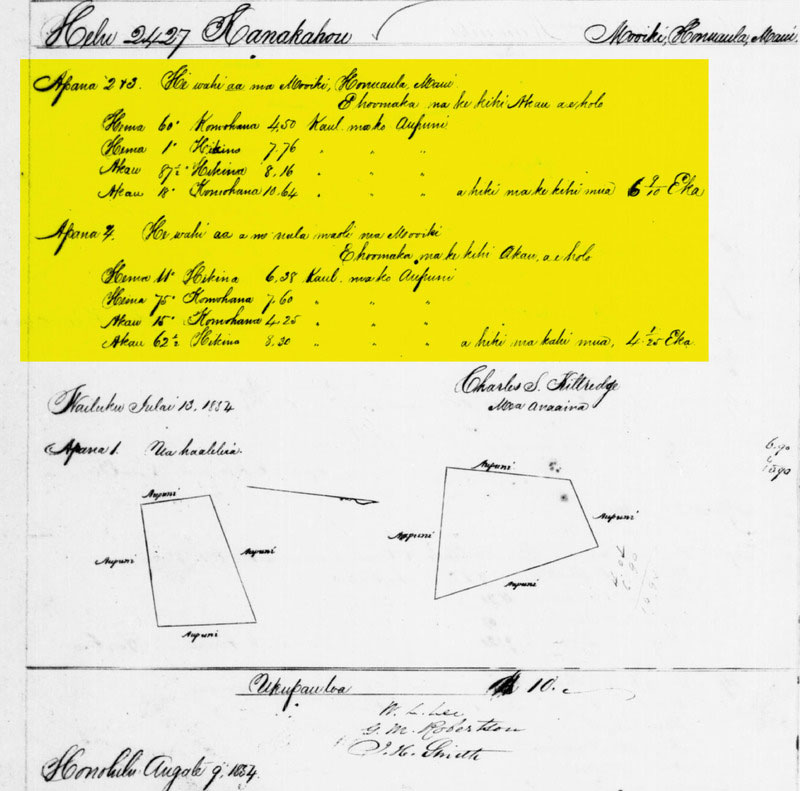 Helu 2427 Kanakahou Mooiki, Honuaula, Maui.
Apana 2 & 3. He wahi aa ma Mooiki, Honuaula, Maui
E hoomaka ma ke kihi Akau a e holo
Hema 60° Komohana 4.50 Kaul. ma ko Aupuni
Hema 1° Hikina 7.76 " " "
Akau 87½° Hikina 8.16 " " "
Akau 18° Komohana 10.64 " " " a hiki ma ke kihi mua 6 9/10 Eka
Apana 4. He wahi aa a me kula maoli ma Mooiki
E hoomaka ma ke kihi Akau, a e holo
Hema 11° Hikina 6.38 Kaul. ma ko Aupuni
Hema 75° Komohana 7.60 " " "
Akau 15° Komohana 4.25 " " "
Akau 62½ Hikina 8.30 " " " a hiki ma kahi mua, 4 1/25 Eka
Wailuku Julai 13, 1854 Charles S. Kittredge
Mea anaaina
Apana 1. Ua haaleleia.
6.90
4
Aupuni
Aupuni
Aupuni
Aupuni
Aupuni
Aupuni
Aupuni
Aupuni
Ukupau loa 10.
W. L. Lee
G. M. Robertson
J. H. Smith
Honolulu Augate 9. 1854.